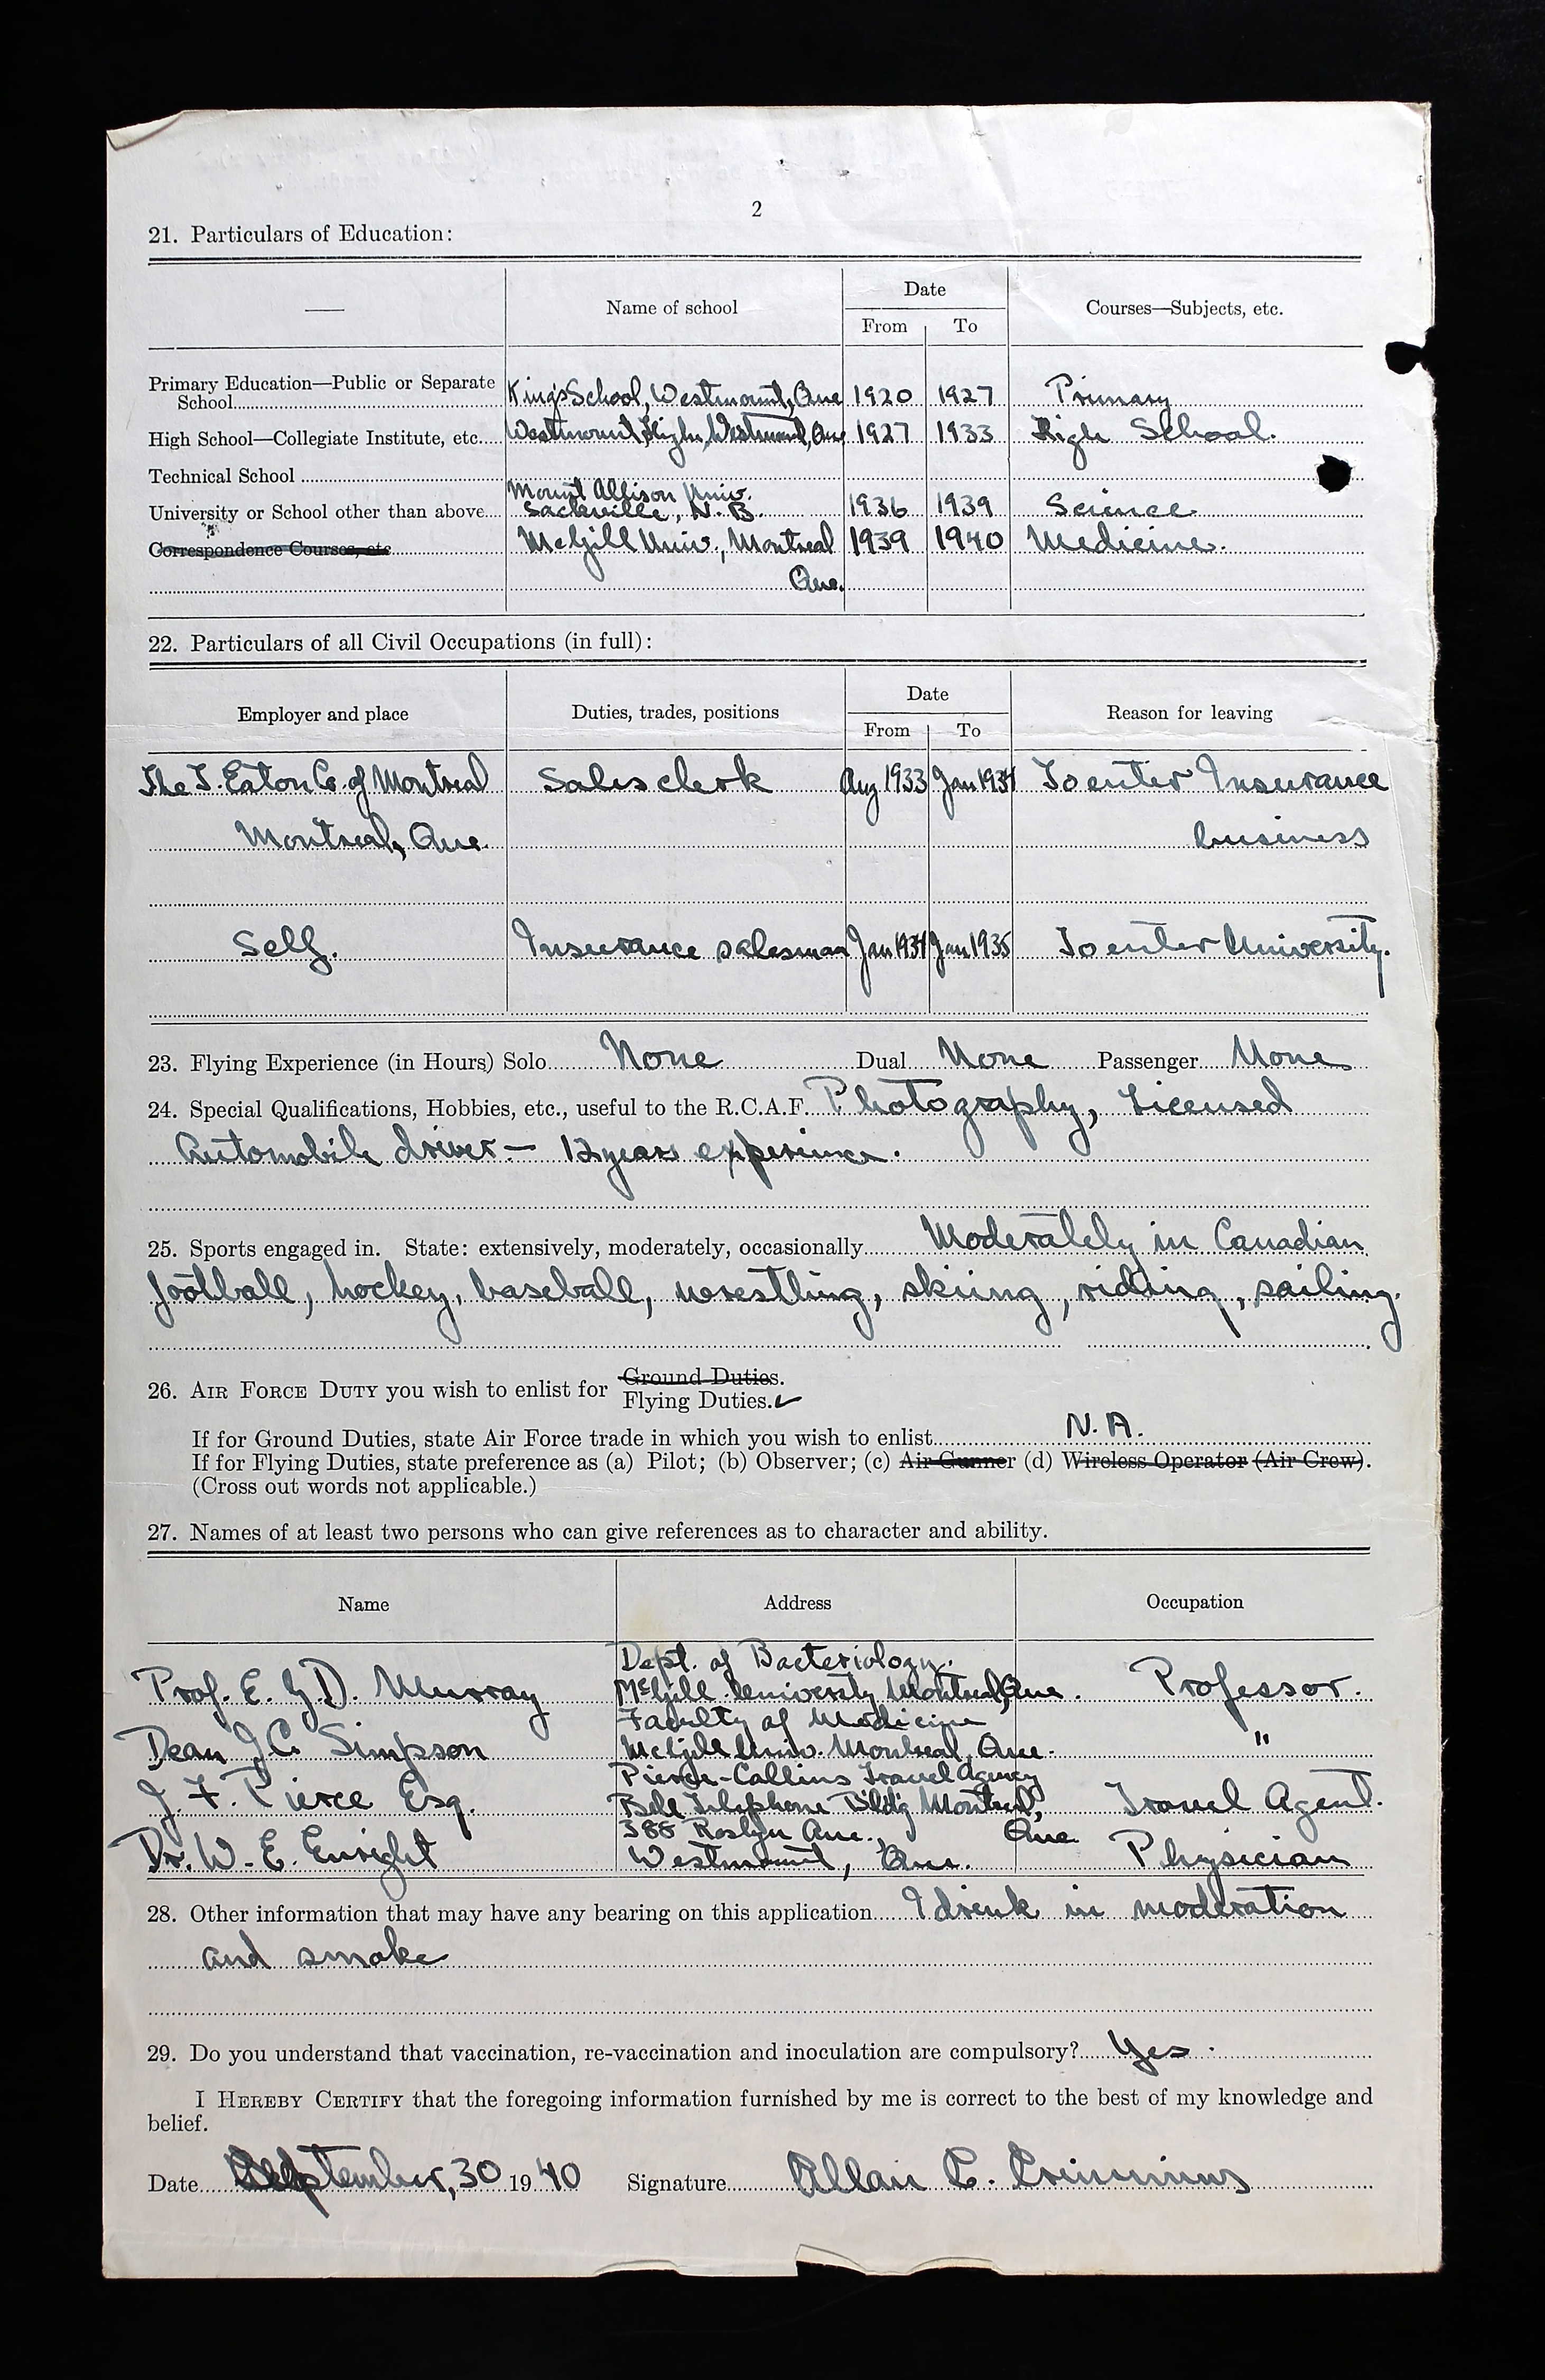 2
21. Particulars of Education:
— Name of school Date Courses—Subjects, etc.
From To
Primary Education—Public or Separate
School King's School, Westmount, Que 1920 1927 Primary
High School—Collegiate Institute, etc. Westmount High, Westmount, Que 1927 1933 High School.
Technical School
Mount Allison Univ.
University or School other than above Sackville, N.B. 1936 1939 Science
Correspondence Courses, etc McGill Univ., Montreal 1939 1940 Medicine.
Que.
22. Particulars of all Civil Occupations (in full):
Employer and place Duties, trades, positions Date Reason for leaving
From To
The T. Eaton Co. of Montreal Sales clerk Aug 1933 Jan 1934 To enter Insurance
Montreal, Que. business
Self. Insurance salesman Jan 1934 Jan 1935 To enter University.
23. Flying Experience (in Hours) Solo None Dual None Passenger None
24. Special Qualifications, Hobbies, etc., useful to the R.C.A.F. Photography, Licensed
Automobile driver — 12 years experience.
25. Sports engaged in. State: extensively, moderately, occasionally Moderately in Canadian
football, hockey, baseball, wrestling, skiing, riding, sailing.
26. AIR FORCE DUTY you wish to enlist for Ground Duties.
Flying Duties. ✓
If for Ground Duties, state Air Force trade in which you wish to enlist N.A.
If for Flying Duties, state preference as (a) Pilot; (b) Observer; (c) Air Gunner (d) Wireless Operator (Air Crew).
(Cross out words not applicable.)
27. Names of at least two persons who can give references as to character and ability.
Name Address Occupation
Dept. of Bacteriology.
Prof. E. G. D. Murray McGill University Montreal, Que. Professor.
Faculty of Medicine
Dean J.C. Simpson McGill Univ. Montreal, Que. "
Pierce-Collins Travel Agency
J. F. Pierce Esq. Bell Telephone Bldg Montreal, Travel Agent.
388 Roslyn Ave., Que.
Dr. W. E. Enright Westmount, Que. Physician
28. Other information that may have any bearing on this application I drink in moderation
and smoke
29. Do you understand that vaccination, re-vaccination and inoculation are compulsory? Yes.
I HEREBY CERTIFY that the foregoing information furnished by me is correct to the best of my knowledge and
belief.
Date September, 30 1940 Signature Allan C. Crimmins